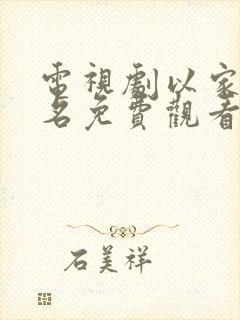 電視劇以家
名免費觀看
石美祥